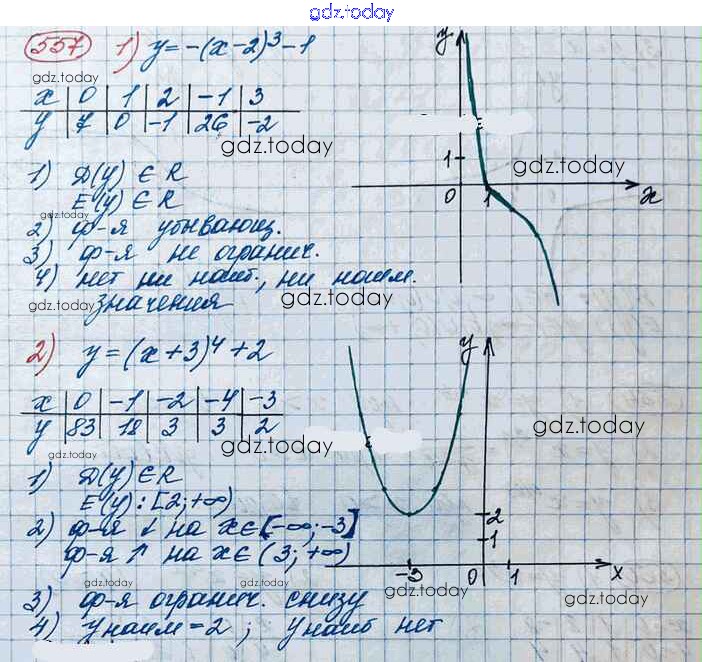 gdz.today
557 1) y = -(x-2)³-1
gdz.today
x | 0 | 1 | 2 | -1 | 3
y | 7 | 0 | -1 | 26 | -2
gdz.today
1) Д(y) ∈ R
E(y) ∈ R
gdz.today
2) ф-я убывающ.
3) ф-я не огранич.
4) нет ни наиб., ни наим.
значения
gdz.today
gdz.today
y
1
0
1
x
gdz.today
2) y = (x+3)⁴+2
x | 0 | -1 | -2 | -4 | -3
y | 83 | 18 | 3 | 3 | 2
gdz.today
gdz.today
1) Д(y) ∈ R
E(y): [2; +∞)
2) ф-я ↓ на x∈[-∞; -3]
ф-я ↑ на x∈(3; +∞)
gdz.today
3) ф-я огранич. снизу
4) y наим = 2 ; y наиб нет
gdz.today
gdz.today
y
gdz.today
2
1
-3
0
1
x
gdz.today
gdz.today